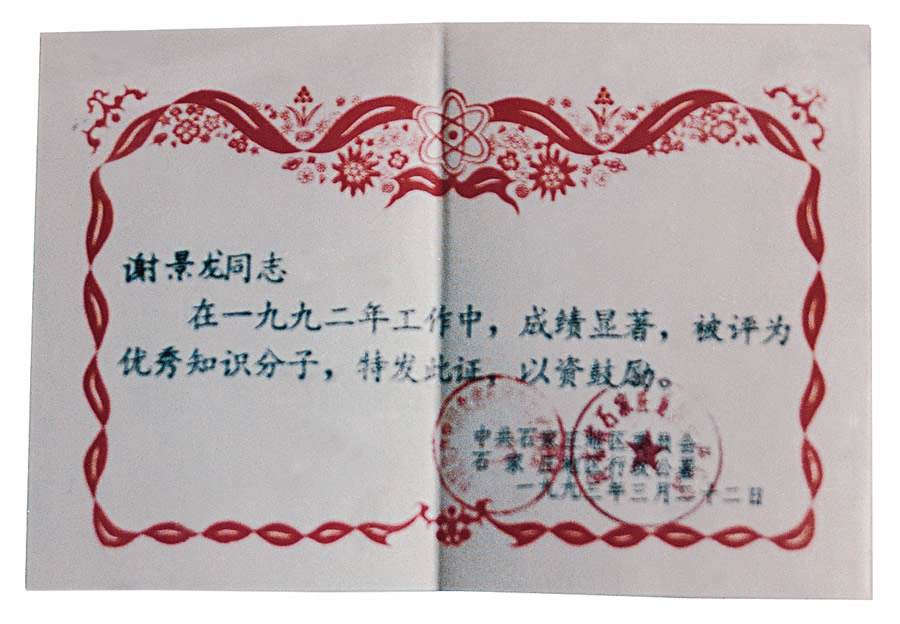 谢景龙同志
在一九九二年工作中，成绩显著，被评为
优秀知识分子，特发此证，以资鼓励。
中共石家庄地区委员会
石家庄地区行政公署
一九九三年三月二十二日